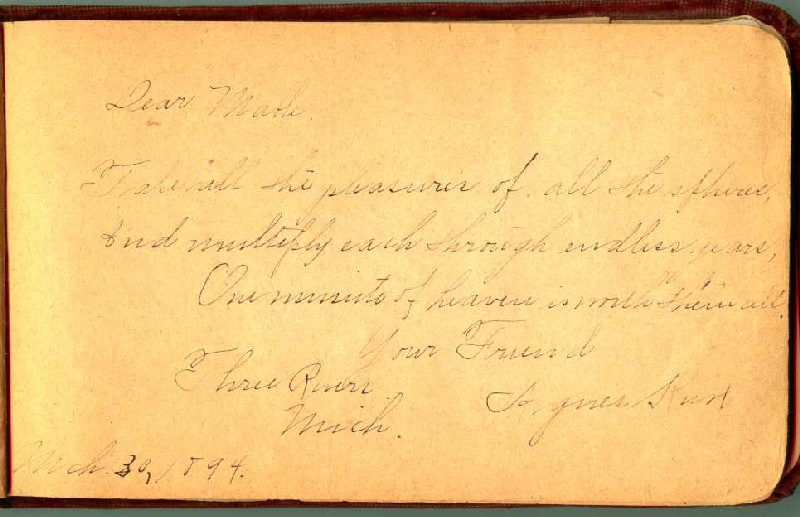 Dear Mable.
Take all the pleasures of all the spheres,
And multiply each through endless years,
One minute of heaven is worth them all.
Your Friend
Three Rivers Agnes
Mich.
Mch. 30, 1894.